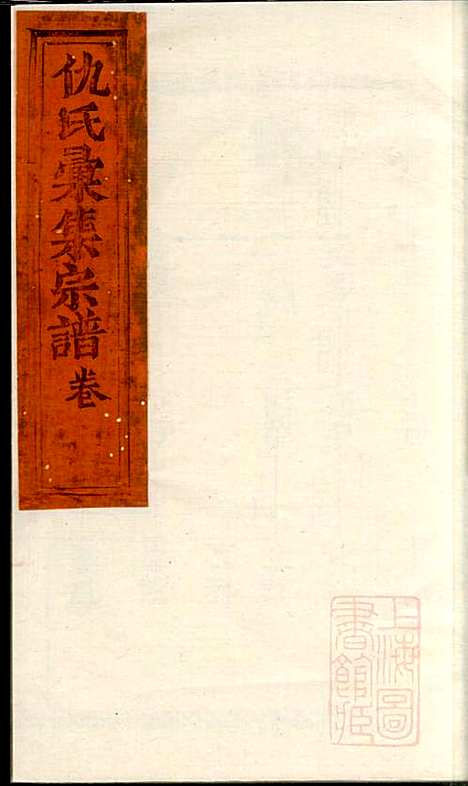 仇氏彙集宗譜卷
上海圖
書館藏